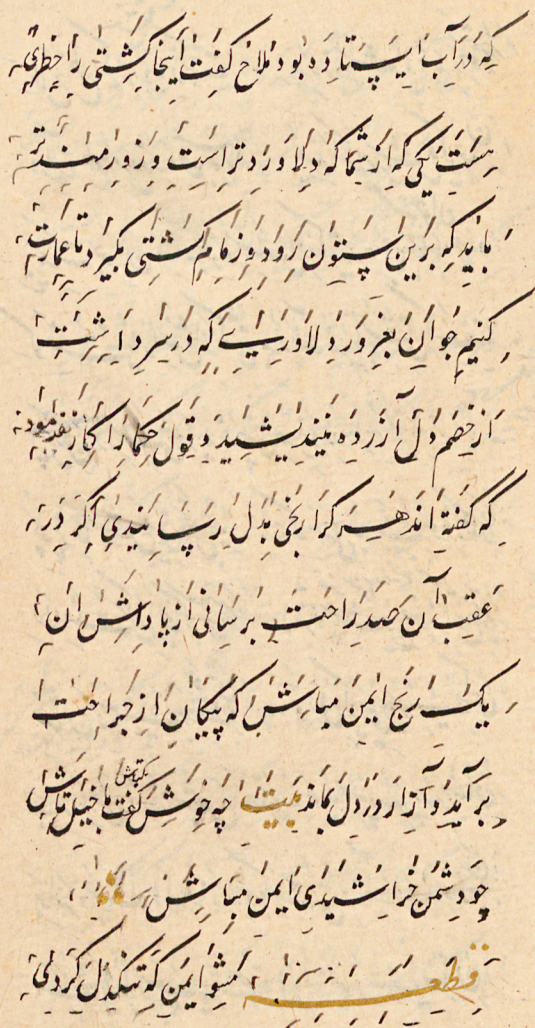 که در آب ایستاده بود ملاح گفت اینجا کشتی را خطری
هست یکی که از شما که دلاورتر است و زورمندتر
باید که برین ستون رود و زمام کشتی بگیرد تا عمارت
کنیم جوان بغرور دلاوری که در سر داشت
از خصم دل آزرده نیندیشید و قول حکما را کار نفرمود
که گفته اند هر کرا رنجی بدل رسانیدی اگر در
عقب آن صد راحت برسانی از پاداش آن
یک رنج ایمن مباش که پیکان از جراحت
برآید و آزار در دل بماند بیت چه خوش گفت بکتاش با خیل تاش
چو دشمن خراشیدی ایمن مباش
قطعه مشو ایمن که تنگدل گردی